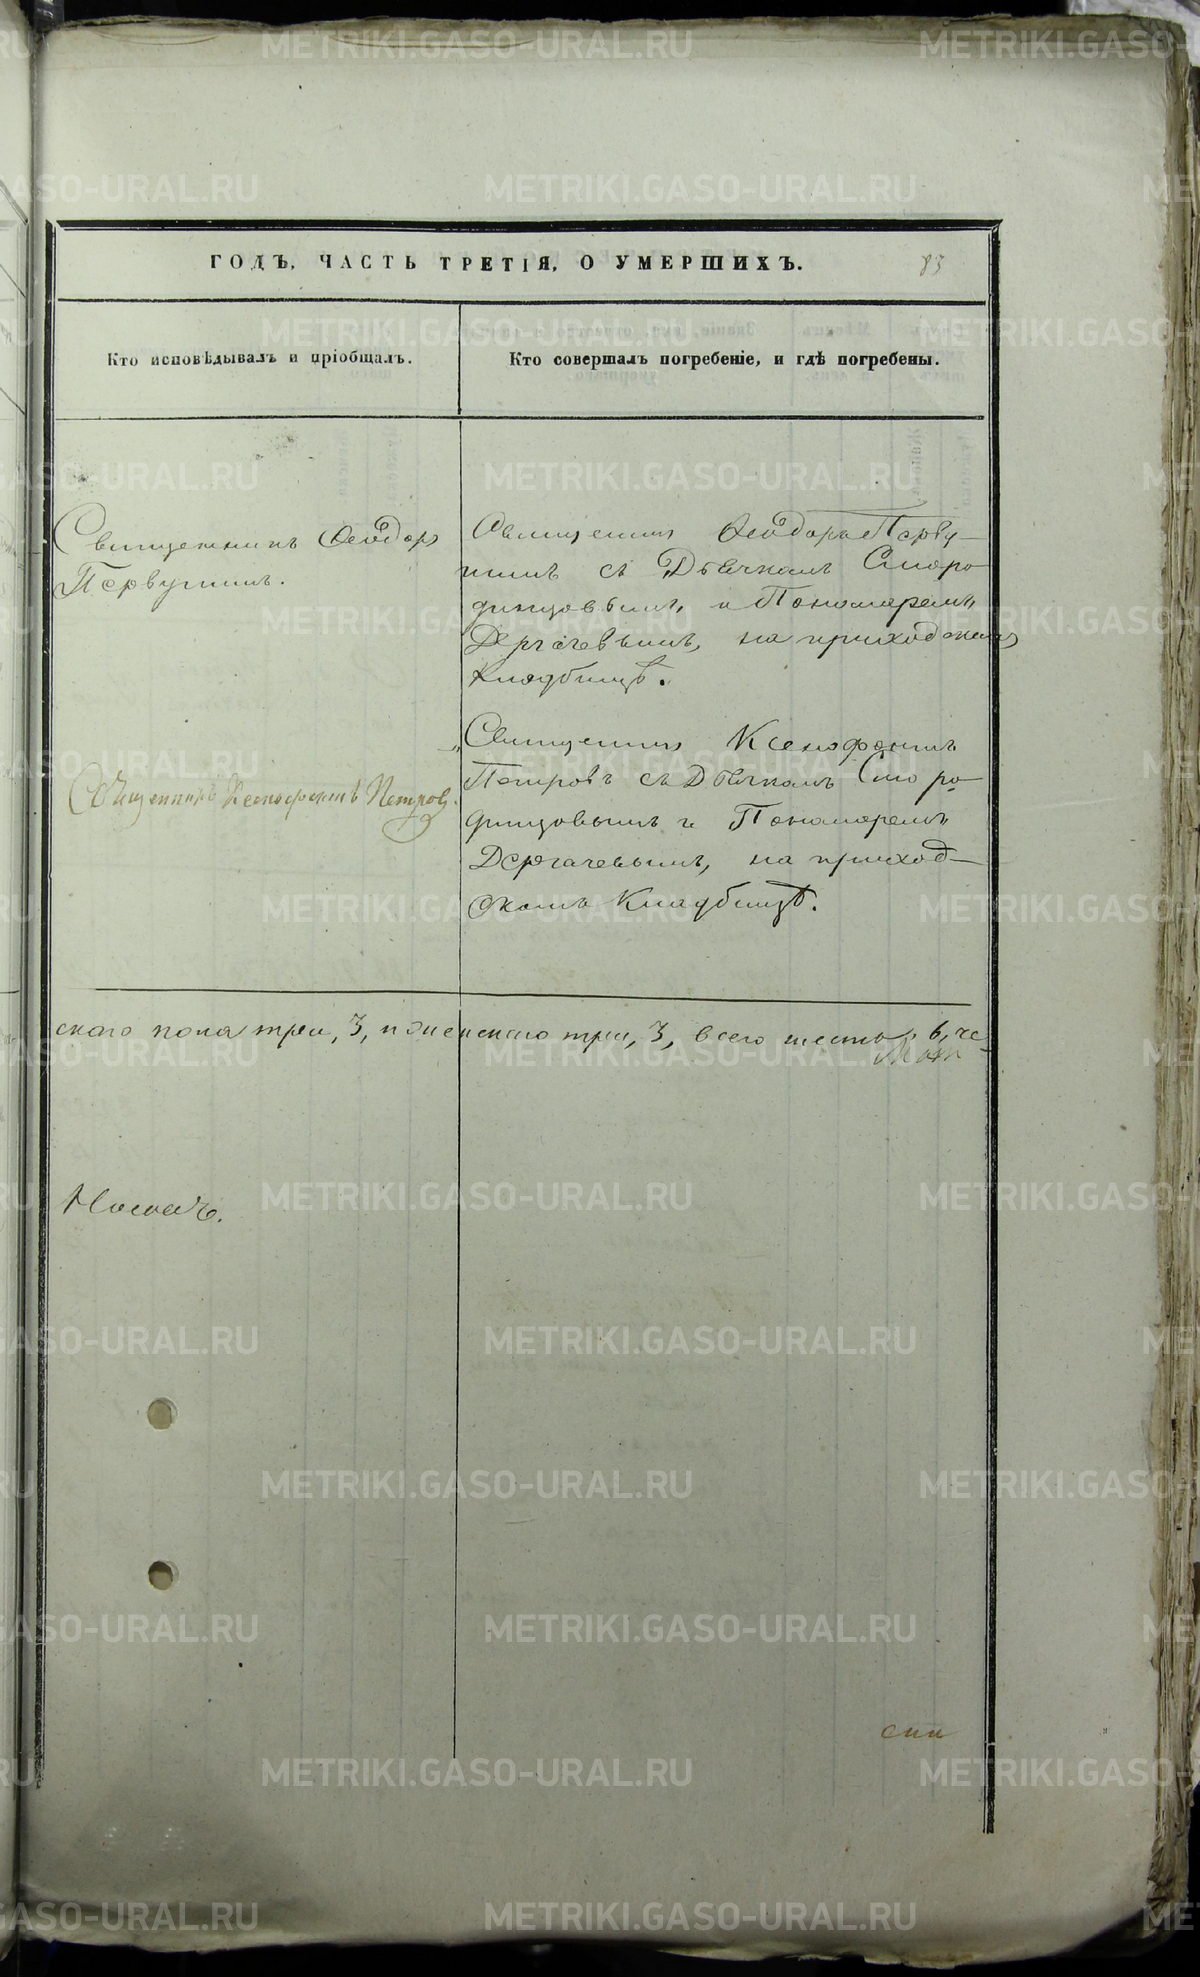 ГОДЪ, ЧАСТЬ ТРЕТІЯ, О УМЕРШИХЪ.
83
Кто исповѣдывалъ и пріобщалъ.
Кто совершалъ погребеніе, и гдѣ погребены.
Священникъ Ѳеодоръ
Первушинъ.
Священникъ Ѳеодоръ Перву-
шинъ съ Дьячкомъ Сморо-
динцовымъ, и Пономаремъ
Дергачевымъ, на приходскомъ
Кладбищѣ.
Священникъ Ксенофонтъ Петровъ.
Священникъ Ксенофонтъ
Петровъ съ Дьячкомъ Сморо-
динцовымъ и Пономаремъ
Дергачевымъ, на приход-
скомъ Кладбищѣ.
скаго пола три, 3, и женскаго три, 3, всего шесть, 6, че-